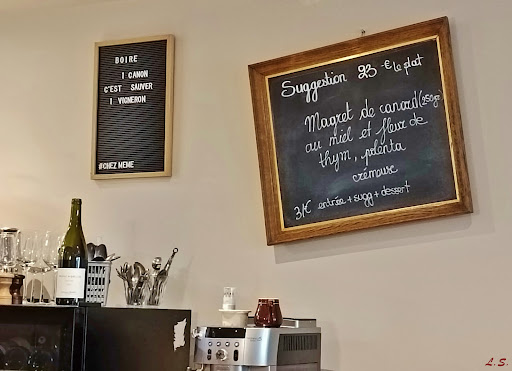 BOIRE
1 CANON
C'EST SAUVER
1 VIGNERON
#CHEZ MEME
Suggestion 23 -€ le plat
Magret de canard (250gr)
au miel et fleur de
thym, polenta
crémeuse
31€ entrée + sugg + dessert
L.S.